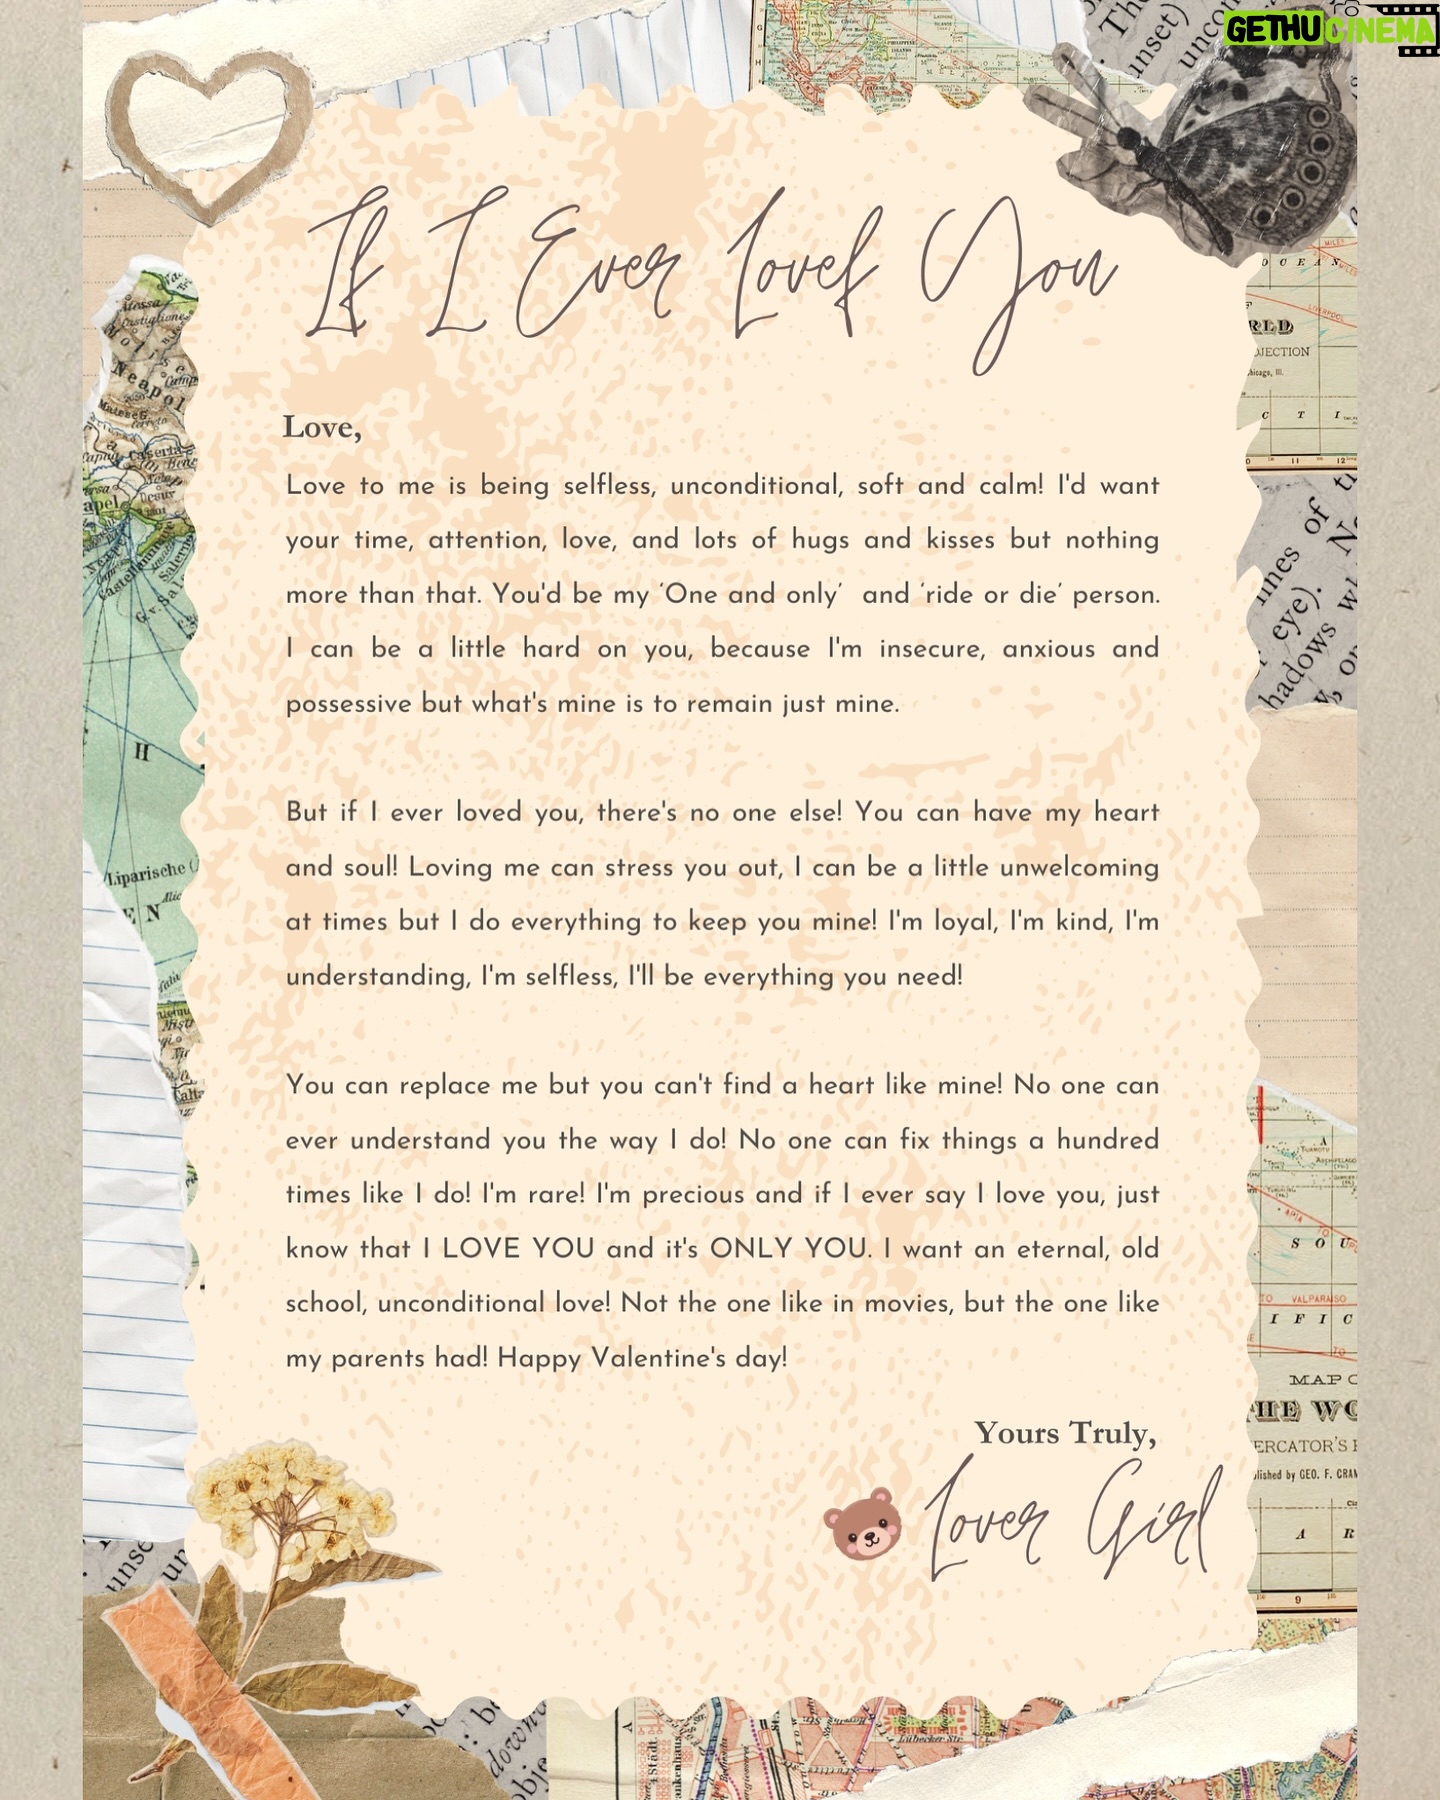 GETHUCINEMA
If I Ever Lovef You
Love,
Love to me is being selfless, unconditional, soft and calm! I'd want
your time, attention, love, and lots of hugs and kisses but nothing
more than that. You'd be my ‘One and only’ and ‘ride or die’ person.
I can be a little hard on you, because I'm insecure, anxious and
possessive but what's mine is to remain just mine.
But if I ever loved you, there's no one else! You can have my heart
and soul! Loving me can stress you out, I can be a little unwelcoming
at times but I do everything to keep you mine! I'm loyal, I'm kind, I'm
understanding, I'm selfless, I'll be everything you need!
You can replace me but you can't find a heart like mine! No one can
ever understand you the way I do! No one can fix things a hundred
times like I do! I'm rare! I'm precious and if I ever say I love you, just
know that I LOVE YOU and it's ONLY YOU. I want an eternal, old
school, unconditional love! Not the one like in movies, but the one like
my parents had! Happy Valentine's day!
Yours Truly,
Lover Girl
unset)
OCEAN
RLD
OJECTION
hicago, Ill.
C T I
10 11 12
Neapol
Caserta
H
Liparische
E N
lines of
eye).
hadows
S O U
TO VALPARAISO
I F I C
MAP O
THE WO
ERCATOR'S P
lished by GEO. F. CRAM
A R
9
Lübecker Str.